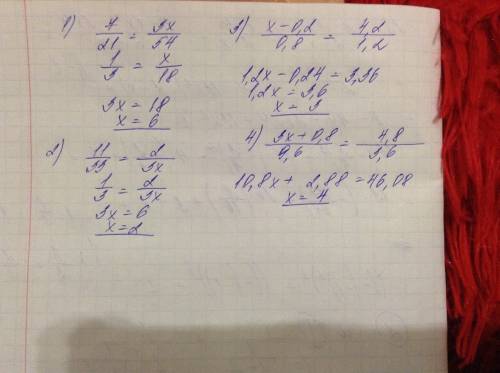 1) 7/21 = 3x/54
1/3 = x/18
3x = 18
x = 6
2) 11/33 = 2/3x
1/3 = 2/3x
3x = 6
x = 2
3) x - 0,2/0,8 = 4,2/1,2
1,2x - 0,24 = 3,36
1,2x = 3,6
x = 3
4) 3x + 0,8/9,6 = 4,8/3,6
10,8x + 2,88 = 46,08
x = 4